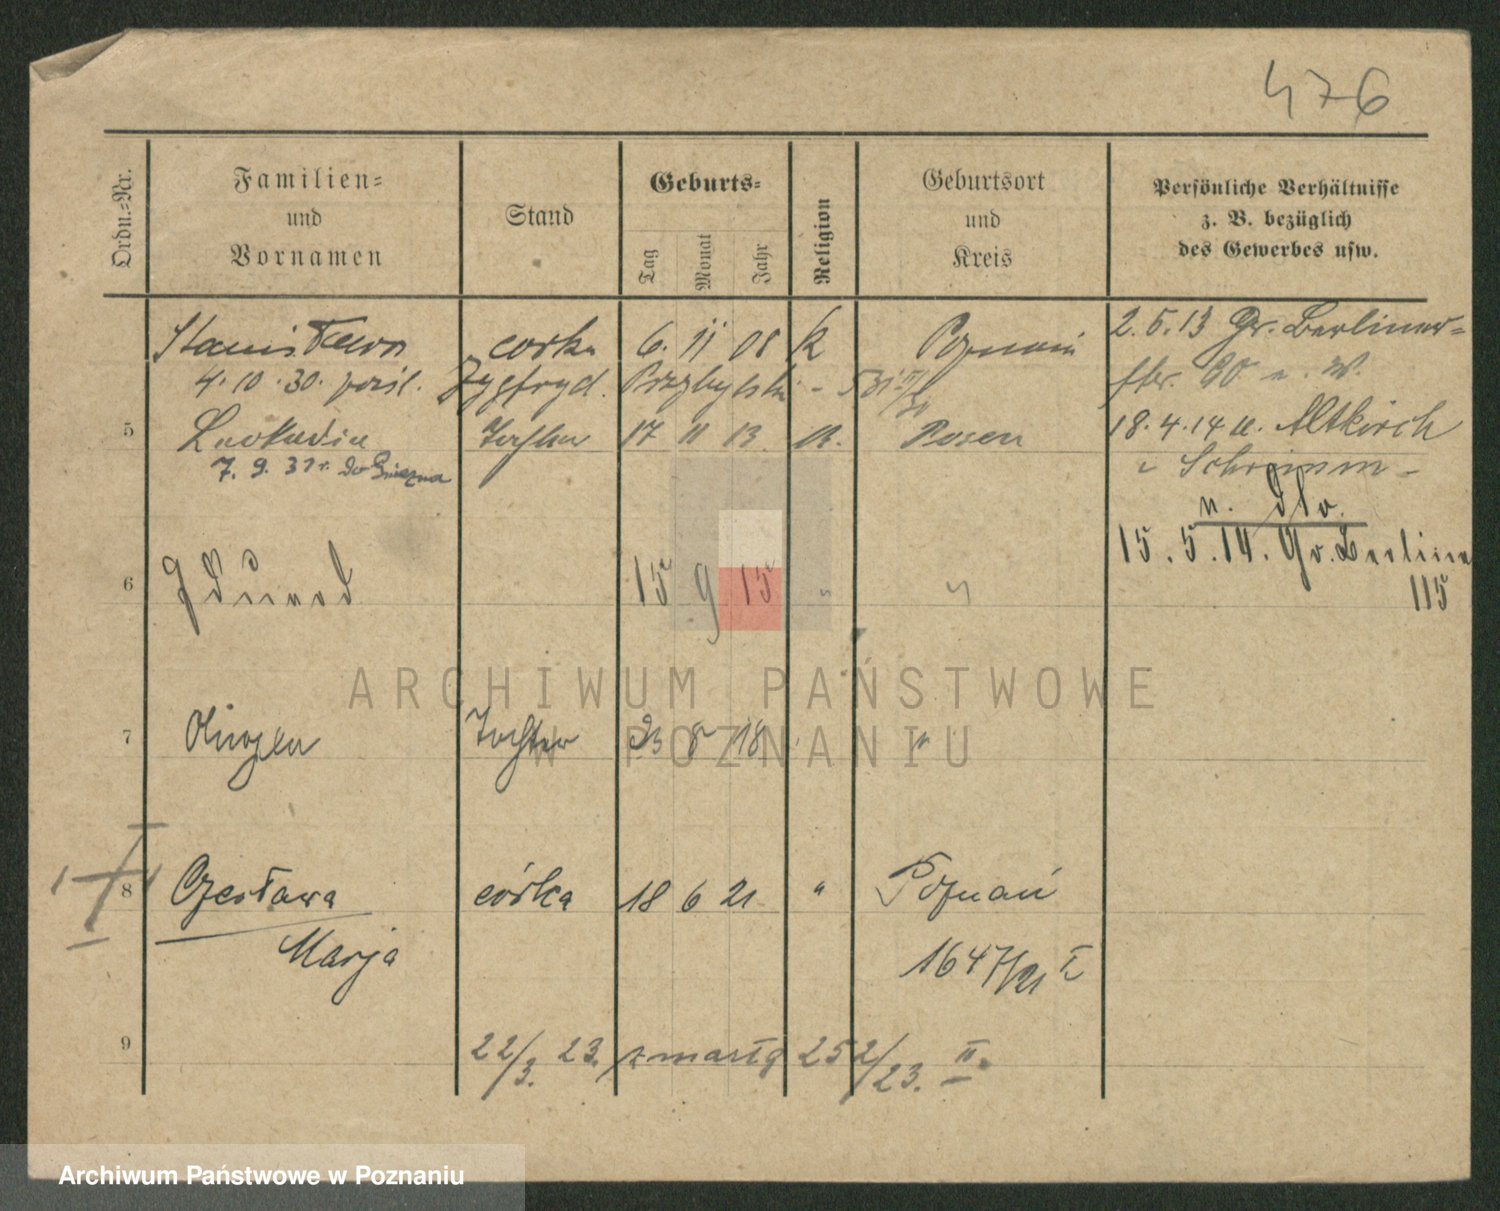 476
Ordn.-Nr.
Familien-
und
Vornamen
Stand
Geburts-
Tag
Monat
Jahr
Religion
Geburtsort
und
Kreis
Persönliche Verhältnisse
z. B. bezüglich
des Gewerbes usw.
Stanisława córka 6. 11 08 k Poznań 2.5.13 Gr. Berliner-
4.10.30. Zygfryd. Przybylski str. 90
5 Leokadia Tochter 17 11 13 k. Posen 18.4.14 u. Altkirch
7. 9. 31 r. do Gniezna Schrimm
15.5.14. Gr. Berliner
115
6 Edmund 15 9 15 "
7 Tochter 23 8 18 "
8 Czesława córka 18 6 21 " Poznań
Marja 1647/21 I
9 22/3. 23. zmarła 252/23. II.
ARCHIWUM PAŃSTWOWE
W POZNANIU
Archiwum Państwowe w Poznaniu